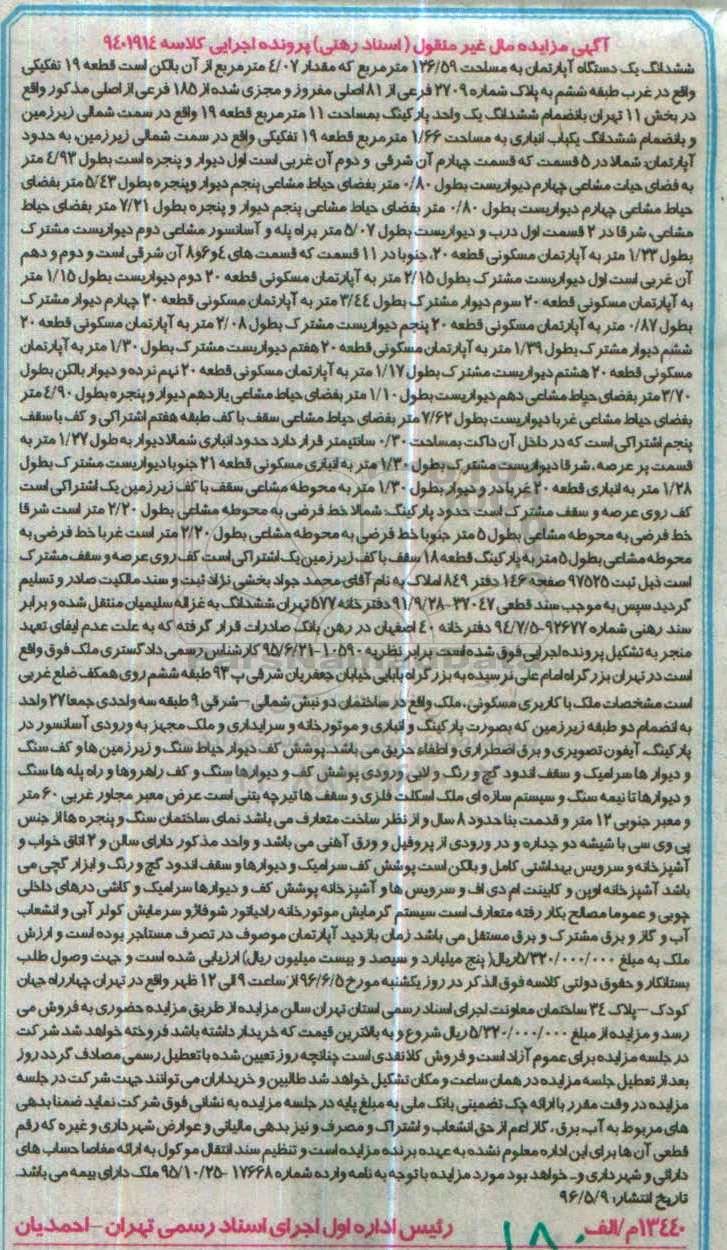 آگهی مزایده مال غیر منقول (اسناد رهنی) پرونده اجرایی کلاسه ۹۴۰۱۹۱۴
ششدانگ یک دستگاه آپارتمان به مساحت ۱۳۶/۵۹ مترمربع که مقدار ۴/۰۷ مترمربع از آن بالکن است قطعه ۱۹ تفکیکی
واقع در غرب طبقه ششم به پلاک شماره ۳۷۰۹ فرعی از ۸۱ اصلی مفروز و مجزی شده از ۱۸۵ فرعی از اصلی مذکور واقع
در بخش ۱۱ تهران بانضمام ششدانگ یک واحد پارکینگ بمساحت ۱۱ مترمربع قطعه ۱۹ واقع در سمت شمالی زیرزمین
و بانضمام ششدانگ یکباب انباری به مساحت ۱/۶۶ مترمربع قطعه ۱۹ تفکیکی واقع در سمت شمالی زیرزمین، به حدود
آپارتمان: شمالا در ۵ قسمت که قسمت چهارم آن شرقی و دوم آن غربی است اول دیوار و پنجره است بطول ۴/۹۳ متر
به فضای حیات مشاعی چهارم دیواریست بطول ۰/۸۰ متر بفضای حیاط مشاعی پنجم دیوار وپنجره بطول ۵/۴۳ متر بفضای
حیاط مشاعی چهارم دیواریست بطول ۰/۸۰ متر بفضای حیاط مشاعی پنجم دیوار و پنجره بطول ۷/۲۱ متر بفضای حیاط
مشاعی، شرقا در ۲ قسمت اول درب و دیواریست بطول ۵/۰۷ متر براه پله و آسانسور مشاعی دوم دیواریست مشترک
بطول ۱/۲۳ متر به آپارتمان مسکونی قطعه ۲۰، جنوبا در ۱۱ قسمت که قسمت های ۴و۶و۸ آن شرقی است و دوم و دهم
آن غربی است اول دیواریست مشترک بطول ۲/۱۵ متر به آپارتمان مسکونی قطعه ۲۰ دوم دیواریست بطول ۱/۱۵ متر
به آپارتمان مسکونی قطعه ۲۰ سوم دیوار مشترک بطول ۳/۴۴ متر به آپارتمان مسکونی قطعه ۲۰ چهارم دیوار مشترک
بطول ۰/۸۷ متر به آپارتمان مسکونی قطعه ۲۰ پنجم دیواریست مشترک بطول ۲/۰۸ متر به آپارتمان مسکونی قطعه ۲۰
ششم دیوار مشترک بطول ۱/۳۹ متر به آپارتمان مسکونی قطعه ۲۰ هفتم دیواریست مشترک بطول ۱/۳۰ متر به آپارتمان
مسکونی قطعه ۲۰ هشتم دیواریست مشترک بطول ۱/۱۷ متر به آپارتمان مسکونی قطعه ۲۰ نهم نرده و دیوار بالکن بطول
۳/۷۰ متر بفضای حیاط مشاعی دهم دیواریست بطول ۱/۱۰ متر بفضای حیاط مشاعی یازدهم دیوار و پنجره بطول ۴/۹۰ متر
بفضای حیاط مشاعی غربا دیواریست بطول ۷/۶۲ متر بفضای حیاط مشاعی سقف با کف طبقه هفتم اشتراکی و کف با سقف
پنجم اشتراکی است که در داخل آن داکت بمساحت ۰/۳۰ سانتیمتر قرار دارد حدود انباری شمالا دیوار به طول ۱/۲۷ متر به
قسمت پر عرصه. شرقا دیواریست مشترک بطول ۱/۳۰ متر به انباری مسکونی قطعه ۲۱ جنوبا دیواریست مشترک بطول
۱/۲۸ متر به انباری قطعه ۲۰ غربا در و دیوار بطول ۱/۳۰ متر به محوطه مشاعی سقف با کف زیرزمین یک اشتراکی است
کف روی عرصه و سقف مشترک است حدود پارکینگ: شمالا خط فرضی به محوطه مشاعی بطول ۲/۲۰ متر است شرقا
خط فرضی به محوطه مشاعی بطول ۵ متر جنوبا خط فرضی به محوطه مشاعی بطول ۲/۲۰ متر است غربا خط فرضی به
محوطه مشاعی بطول ۵ متر به پارکینگ قطعه ۱۸ سقف با کف زیرزمین یک اشتراکی است کف روی عرصه و سقف مشترک
است ذیل ثبت ۹۷۵۲۵ صفحه ۱۴۶ دفتر ۸۴۹ املاک به نام آقای محمد جواد بخشی نژاد ثبت و سند مالکیت صادر و تسلیم
گردید سپس به موجب سند قطعی ۳۷۰۴۷-۹۱/۹/۲۸ دفترخانه ۵۷۷ تهران ششدانگ به غزاله سلیمیان منتقل شده و برابر
سند رهنی شماره ۹۲۶۷۷-۹۴/۷/۵ دفترخانه ۴۰ اصفهان در رهن بانک صادرات قرار گرفته که به علت عدم ایفای تعهد
منجر به تشکیل پرونده اجرایی فوق شده است. برابر نظریه ۱۰۵۹۰-۹۵/۶/۲۱ کارشناس رسمی دادگستری ملک فوق واقع
است در تهران بزرگراه امام علی نرسیده به بزرگراه بابایی خیابان جعفریان شرقی پ ۹۳ طبقه ششم روی همکف ضلع غربی
است مشخصات ملک با کاربری مسکونی، ملک واقع در ساختمان دو نبش شمالی – شرقی ۹ طبقه سه واحدی جمعا ۲۷ واحد
به انضمام دو طبقه زیرزمین که بصورت پارکینگ و انباری و موتورخانه و سرایداری و ملک مجهز به ورودی آسانسور در
پارکینگ، آیفون تصویری و برق اضطراری و اطفاء حریق می باشد. پوشش کف دیوار حیاط سنگ و زیرزمین ها و کف سنگ
و دیوار ها سرامیک و سقف اندود گچ و رنگ و لابی ورودی پوشش کف و دیوارها سنگ و کف راهروها و راه پله ها سنگ
و دیوارها تا نیمه سنگ و سیستم سازه ای ملک اسکلت فلزی و سقف ها تیرچه بتنی است عرض معبر مجاور غربی ۶۰ متر
و معبر جنوبی ۱۲ متر و قدمت بنا حدود ۸ سال و از نظر ساخت متعارف می باشد نمای ساختمان سنگ و پنجره ها از جنس
پی وی سی با شیشه دو جداره و در ورودی از پروفیل و ورق آهنی می باشد و واحد مذکور دارای سالن و ۲ اتاق خواب و
آشپزخانه و سرویس بهداشتی کامل و بالکن است پوشش کف سرامیک و دیوارها و سقف اندود گچ و رنگ و ابزار گچی می
باشد آشپزخانه اوپن و کابینت ام دی اف و سرویس ها و آشپزخانه پوشش کف و دیوارها سرامیک و کاشی درهای داخلی
چوبی و عموما مصالح بکار رفته متعارف است سیستم گرمایش موتورخانه رادیاتور شوفاژ و سرمایش کولر آبی و انشعاب
آب و گاز و برق مشترک و برق مستقل می باشد زمان بازدید آپارتمان موصوف در تصرف مستاجر بوده است و ارزش
ملک به مبلغ ۵/۳۲۰/۰۰۰/۰۰۰ریال( پنج میلیارد و سیصد و بیست میلیون ریال) ارزیابی شده است و جهت وصول طلب
بستانکار و حقوق دولتی کلاسه فوق الذکر در روز یکشنبه مورخ ۹۶/۶/۵ از ساعت ۹ الی ۱۲ ظهر واقع در تهران چهارراه جهان
کودک – پلاک ۳۴ ساختمان معاونت اجرای اسناد رسمی استان تهران سالن مزایده از طریق مزایده حضوری به فروش می
رسد و مزایده از مبلغ ۵/۳۲۰/۰۰۰/۰۰۰ ریال شروع و به بالاترین قیمت که خریدار داشته باشد فروخته خواهد شد شرکت
در جلسه مزایده برای عموم آزاد است و فروش کلا نقدی است چنانچه روز تعیین شده با تعطیل رسمی مصادف گردد روز
بعد از تعطیل جلسه مزایده در همان ساعت و مکان تشکیل خواهد شد طالبین و خریداران می توانند جهت شرکت در جلسه
مزایده در وقت مقرر با ارائه چک تضمینی بانک ملی به مبلغ پایه در جلسه مزایده به نشانی فوق شرکت نماید ضمنا بدهی
های مربوط به آب، برق، گاز اعم از حق انشعاب و اشتراک و مصرف و نیز بدهی مالیاتی و عوارض شهرداری و غیره که رقم
قطعی آن ها برای این اداره معلوم نشده به عهده برنده مزایده است و تنظیم سند انتقال موکول به ارائه مفاصا حساب های
دارائی و شهرداری و... خواهد بود مورد مزایده با توجه به نامه وارده شماره ۱۷۶۶۸ -۹۵/۱۰/۲۵ ملک دارای بیمه می باشد.
تاریخ انتشار: ۹۶/۵/۹
۱۳۴۴۰م/الف رئیس اداره اول اجرای اسناد رسمی تهران – احمدیان
۱۸۰